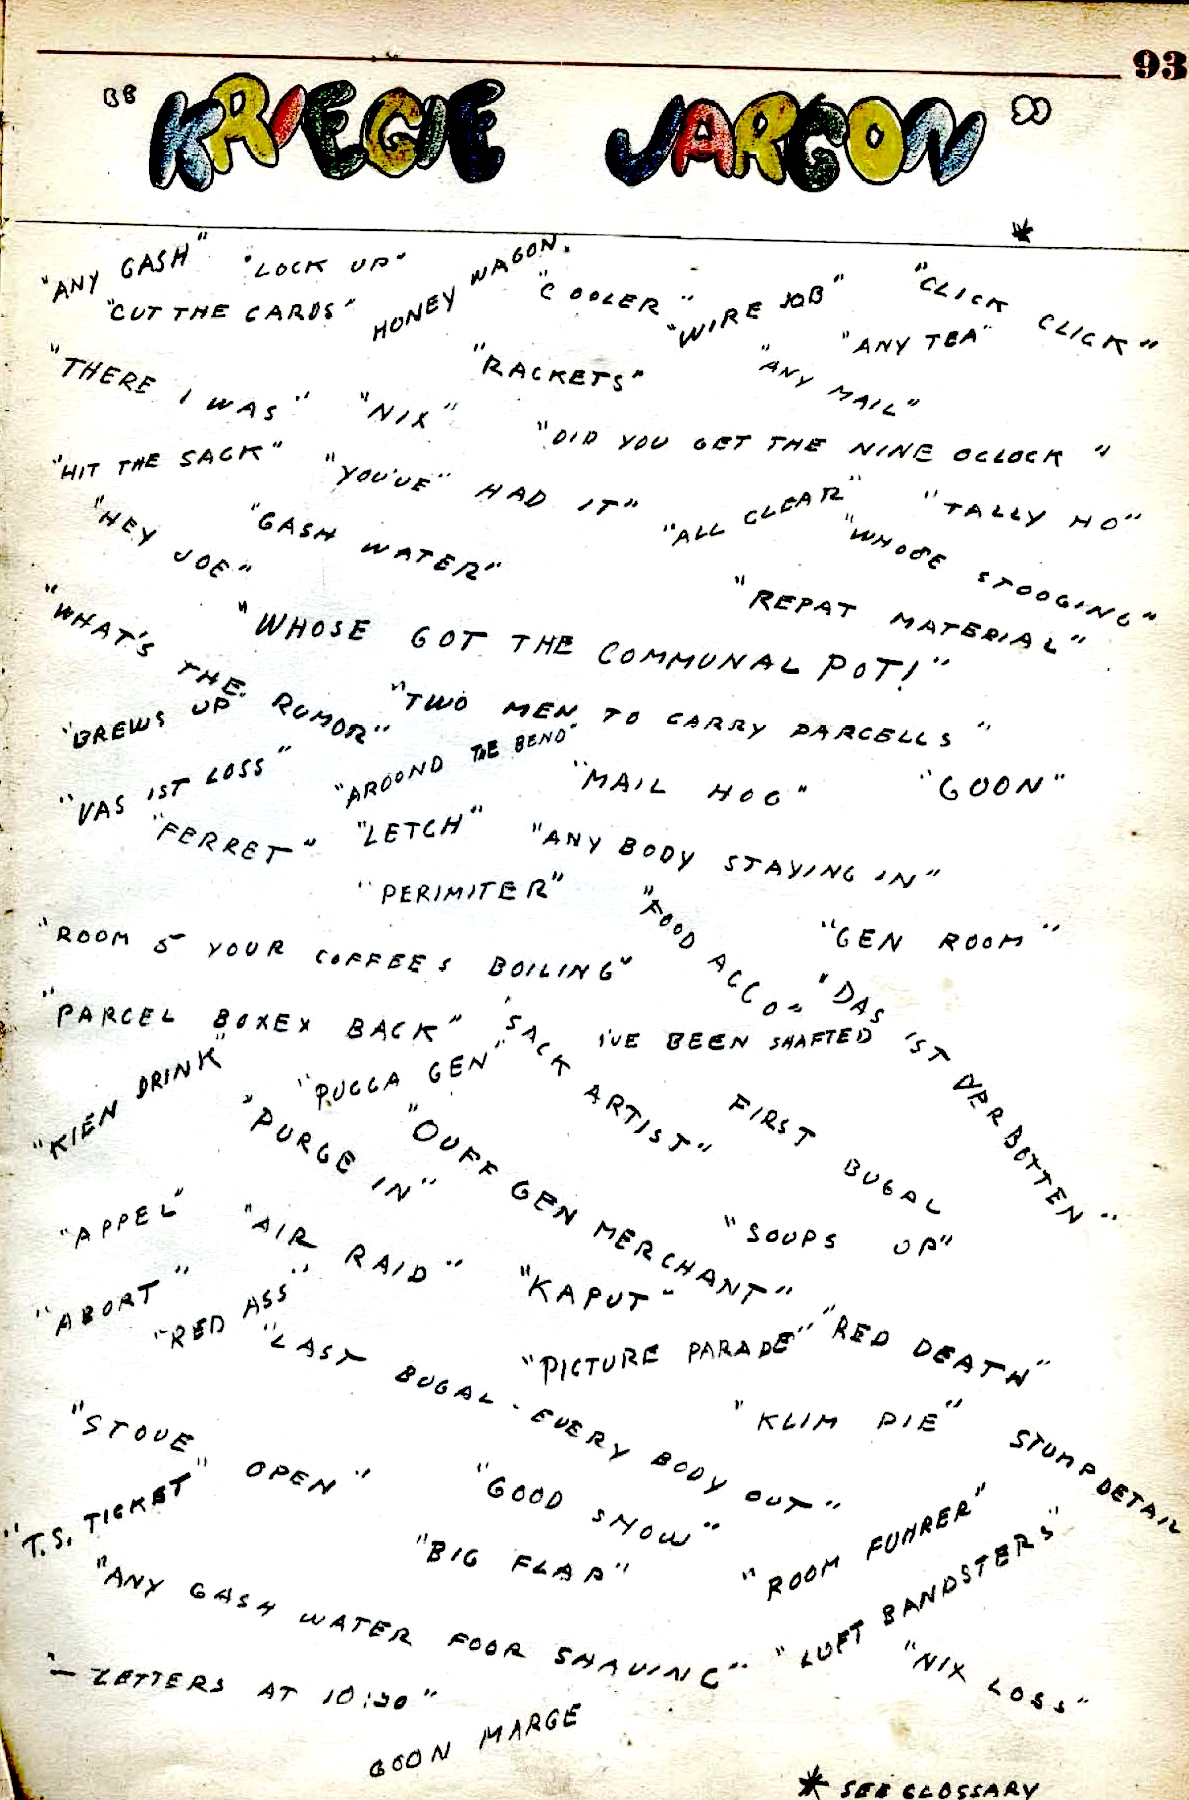 93
"KRIEGIE JARGON"
*
"ANY GASH"
"LOCK UP"
HONEY WAGON.
"COOLER"
"WIRE JOB"
"CLICK CLICK"
"CUT THE CARDS"
"ANY TEA"
"THERE I WAS"
"RACKETS"
"ANY MAIL"
"NIX"
"DID YOU GET THE NINE OCLOCK"
"HIT THE SACK"
"YOU'VE" HAD IT"
"ALL CLEAR"
"TALLY HO"
"HEY JOE"
"GASH WATER"
"WHOSE STOOGING"
"REPAT MATERIAL"
"WHAT'S THE RUMOR"
"WHOSE GOT THE COMMUNAL POT!"
"BREWS UP"
"TWO MEN TO CARRY PARCELLS"
"VAS IST LOSS"
"AROOND THE BEND"
"MAIL HOG"
"GOON"
"FERRET"
"LETCH"
"ANY BODY STAYING IN"
"PERIMITER"
"FOOD ACCO"
"GEN ROOM"
"ROOM 5 YOUR COFFEES BOILING"
"DAS IST VERBOTTEN"
"PARCEL BOXEX BACK"
"SACK ARTIST"
I'VE BEEN SHAFTED
"KIEN DRINK"
"PUGGA GEN"
FIRST BUGAL
"PURGE IN"
"DUFF GEN MERCHANT"
"APPEL"
"AIR RAID"
"SOUPS UP"
"ABORT"
"RED ASS"
"KAPUT"
"RED DEATH"
"LAST BUGAL - EVERY BODY OUT"
"PICTURE PARADE"
"STOVE OPEN"
"KLIM PIE"
STUMP DETAIL
"T.S. TICKET"
"GOOD SHOW"
"BIG FLAP"
"ROOM FUHRER"
"ANY GASH WATER FOOR SHAVING"
"LUFT BANDSTERS"
"NIX LOSS"
"— LETTERS AT 10:30"
GOON MARGE
* SEE GLOSSARY